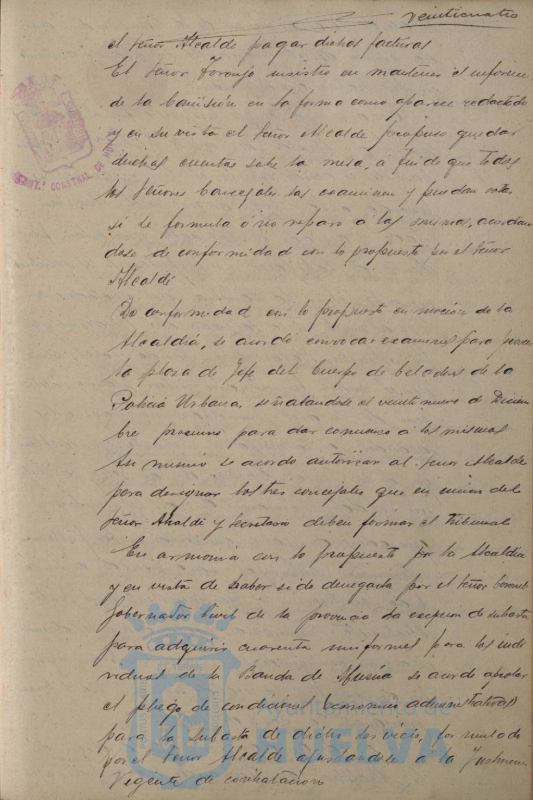 veinticuatro
el señor Alcalde pagar dichas facturas
El señor Toronjo insistió en mantener el informe
de la Comisión en la forma como aparece redactado
y en su vista el señor Alcalde propuso quedar
dichas cuentas sobre la mesa, a fin de que todos
los señores Concejales las examinen y puedan ver
si se formula ó no reparo a las mismas, acordan
dose de conformidad con lo propuesto por el señor
Alcalde
De conformidad con lo propuesto en moción de la
Alcaldía, se acordó convocar examenes para proveer
la plaza de Jefe del Cuerpo de Celadores de la
Policia Urbana, señalandose el veintinueve de Diciem
bre proximo para dar comienzo á los mismos
Asi mismo se acordo autorizar al señor Alcalde
para designar los tres concejales que en union del
señor Alcalde y Secretario deben formar el Tribunal
En armonia con lo propuesto por la Alcaldia
y en vista de haber sido denegada por el señor
Gobernador Civil de la provincia la excepcion de subasta
para adquirir cuarenta uniformes para los indi
viduos de la Banda de Musica se acordo aprobar
el pliego de condiciones (economico administrativas)
para la subasta de dicho servicio, formulado
por el señor Alcalde ajustandose a la
Vigente de contratacion
AYTº CONSTNAL DE
Ayuntamiento de
HUELVA